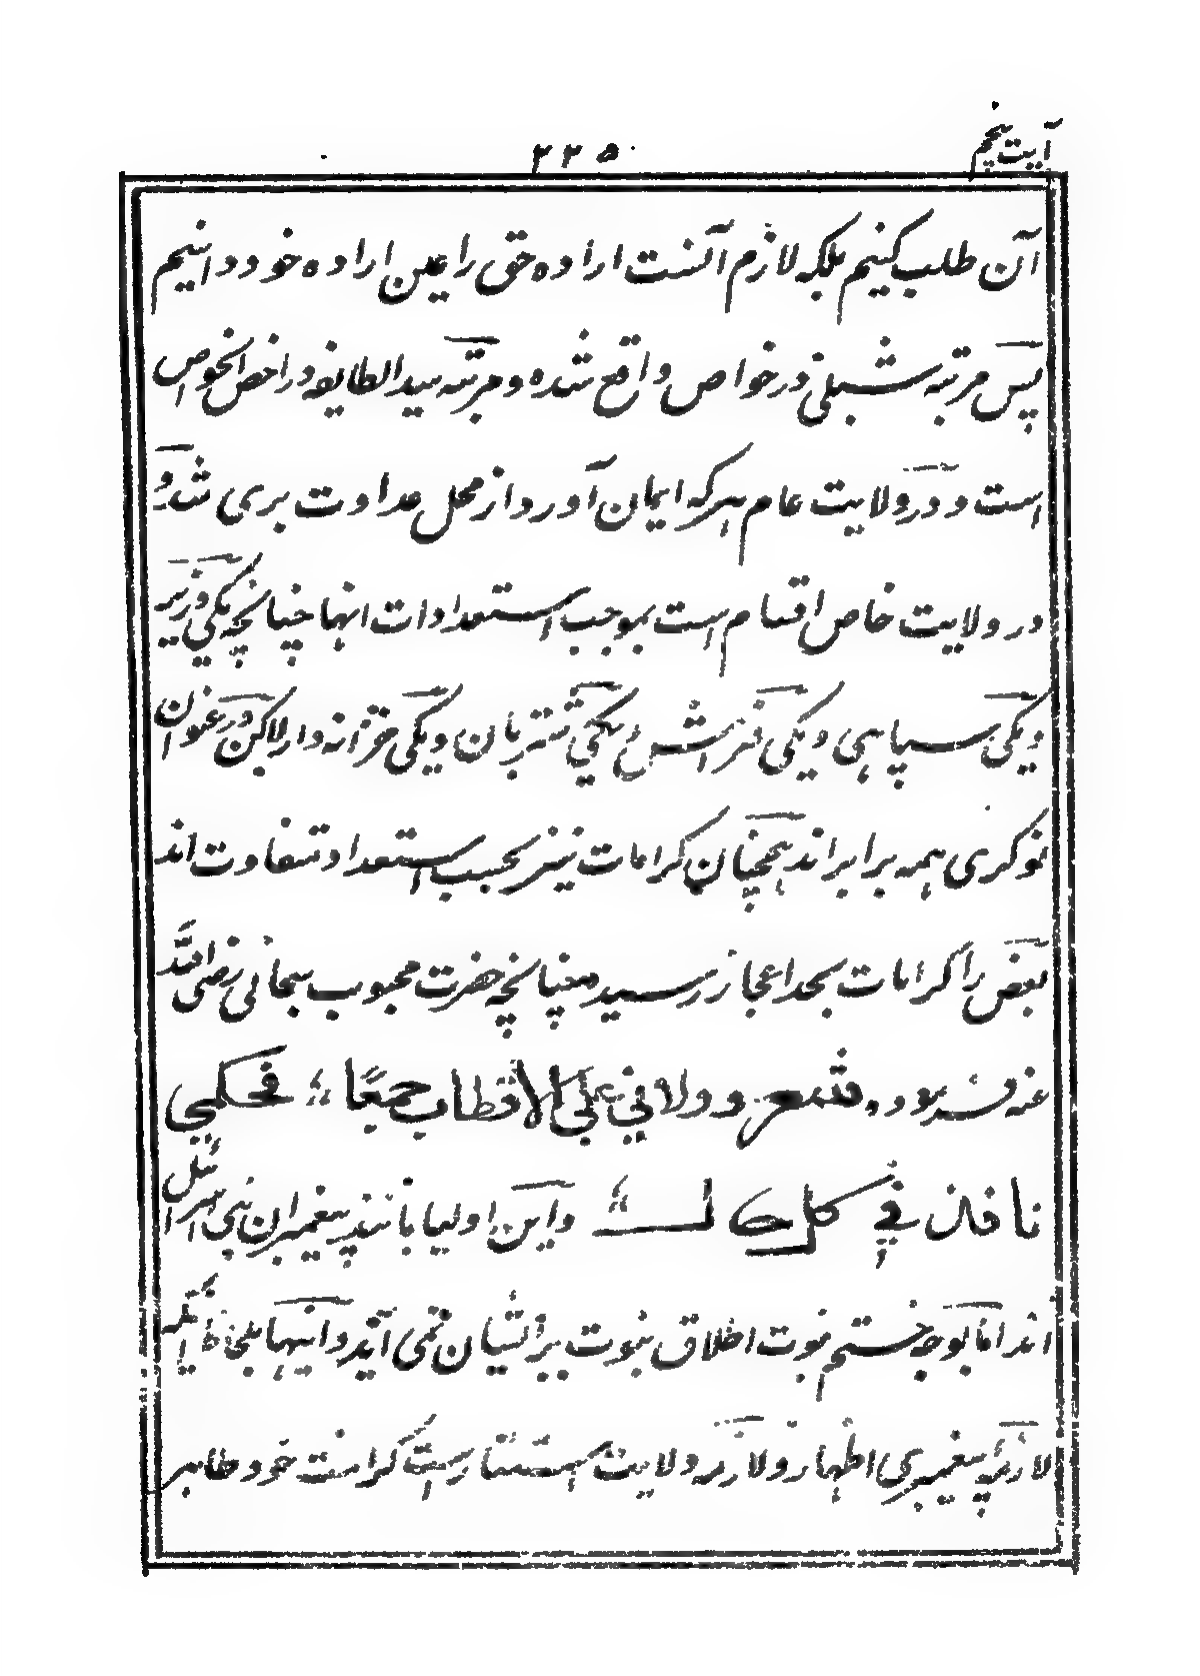 آیت پنجم
۲۲۵
آن طلب کنیم بلکه لازم آنست اراده حق را عین اراده خود دانیم
پس مرتبه شبلی در خواص واقع شده و مرتبه سید الطایفه در اخص الخواص
است و در ولایت عام هرکه ایمان آورد از محل عداوت بری شد و
در ولایت خاص اقسام است بموجب استعدادات انها چنانچه یکی وزیر
و یکی سپاهی و یکی فراش و یکی شتربان و یکی خزانه دار لاکن در عنوان
نوکری همه برابر اند همچنان کرامات نیز بحسب استعداد متفاوت اند
بعض را کرامات بحد اعجاز رسید چنانچه حضرت محبوب سبحانی رضی الله
عنه فرموده شعر وولانی علی الاقطاب جمیعًا ؛ فحکمی
نافذ فی کل حال ؛ و این اولیا مانند پیغمبران بنی اسرائیل
اند اما بوجه ختم نبوت اطلاق نبوت بر ایشان نمی آید و اینها
لازمه پیغمبری اظهار و لازمه ولایت استتار است کرامت خود ظاهر